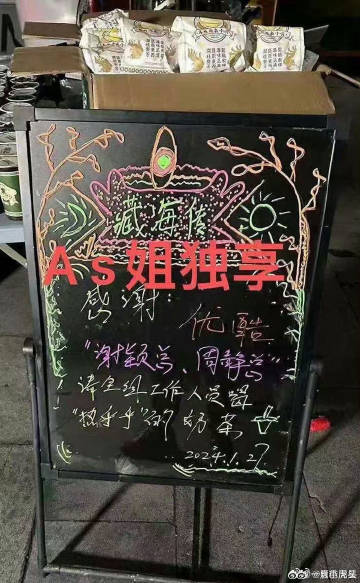 藏海传
As姐独享
感谢:
优酷
"谢颖总、周静总"
请全组工作人员喝
"热乎乎"的奶茶
2024.1.27